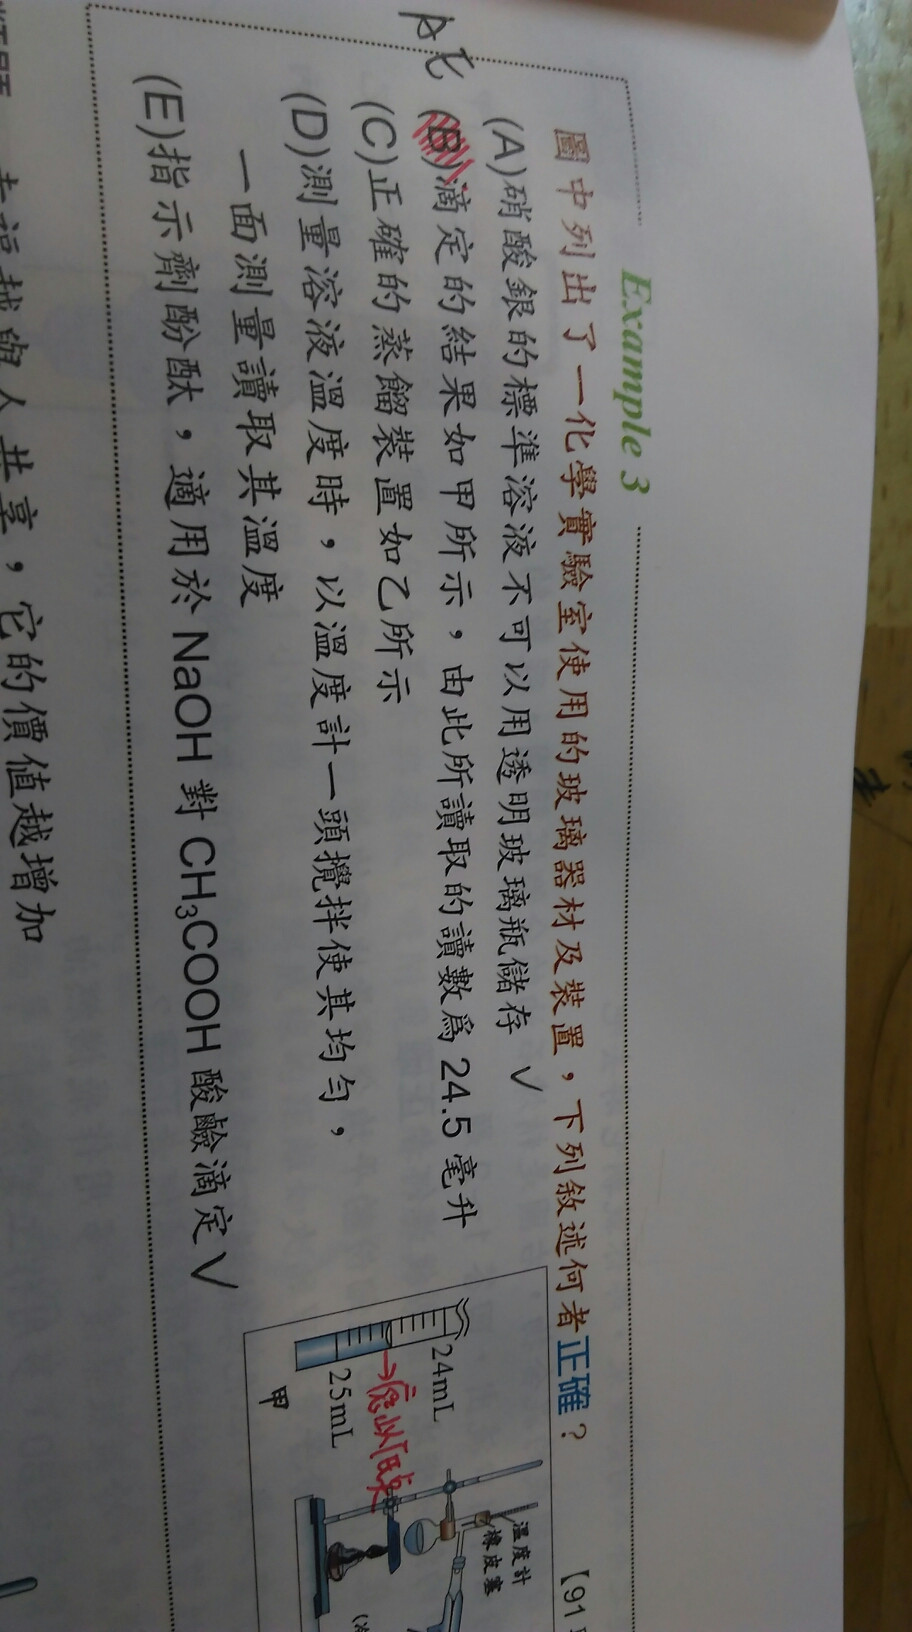 Example 3
圖中列出了一化學實驗室使用的玻璃器材及裝置，下列敘述何者正確？
【91
(A)硝酸銀的標準溶液不可以用透明玻璃瓶儲存 ✓
AE
(B)滴定的結果如甲所示，由此所讀取的讀數為 24.5 毫升
(C)正確的蒸餾裝置如乙所示
(D)測量溶液溫度時，以溫度計一頭攪拌使其均勻，
一面測量讀取其溫度
(E)指示劑酚酞，適用於 NaOH 對 CH₃COOH 酸鹼滴定 ✓
24mL
25mL
甲
溫度計
橡皮塞
與人共享，它的價值越增加